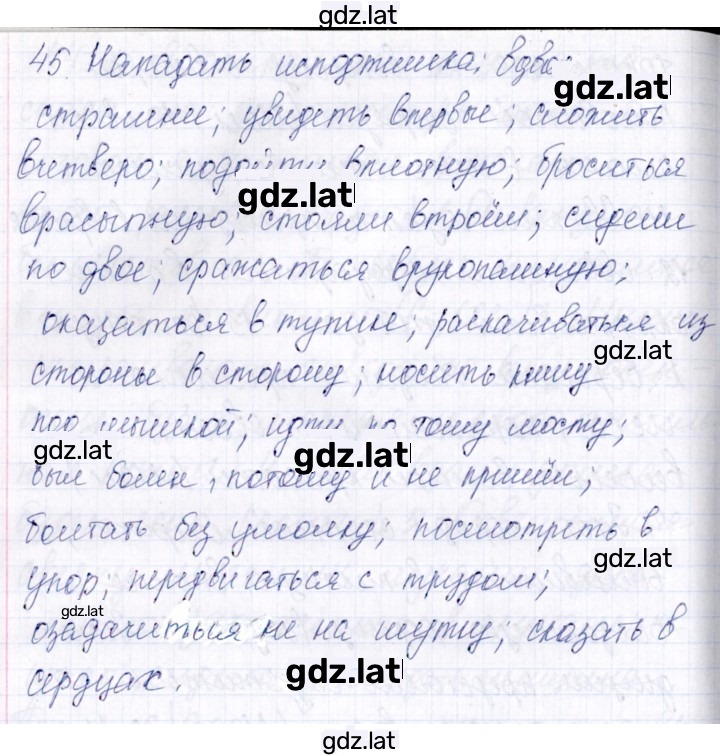 gdz.lat
45. Нападать исподтишка; вдвой
gdz.lat
страшнее; увидеть впервые; сложить
вчетверо; подойти вплотную; броситься
gdz.lat
врассыпную; стояли втроём; сидели
по двое; сражаться врукопашную;
оказаться в тупике; раскачиваться из
gdz.lat
стороны в сторону; носить книгу
под мышкой; идти по тому мосту;
gdz.lat
gdz.lat
был болен, потому и не пришёл;
болтать без умолку; посмотреть в
gdz.lat
упор; передвигаться с трудом;
gdz.lat
озадачиться не на шутку; сказать в
gdz.lat
сердцах.
gdz.lat